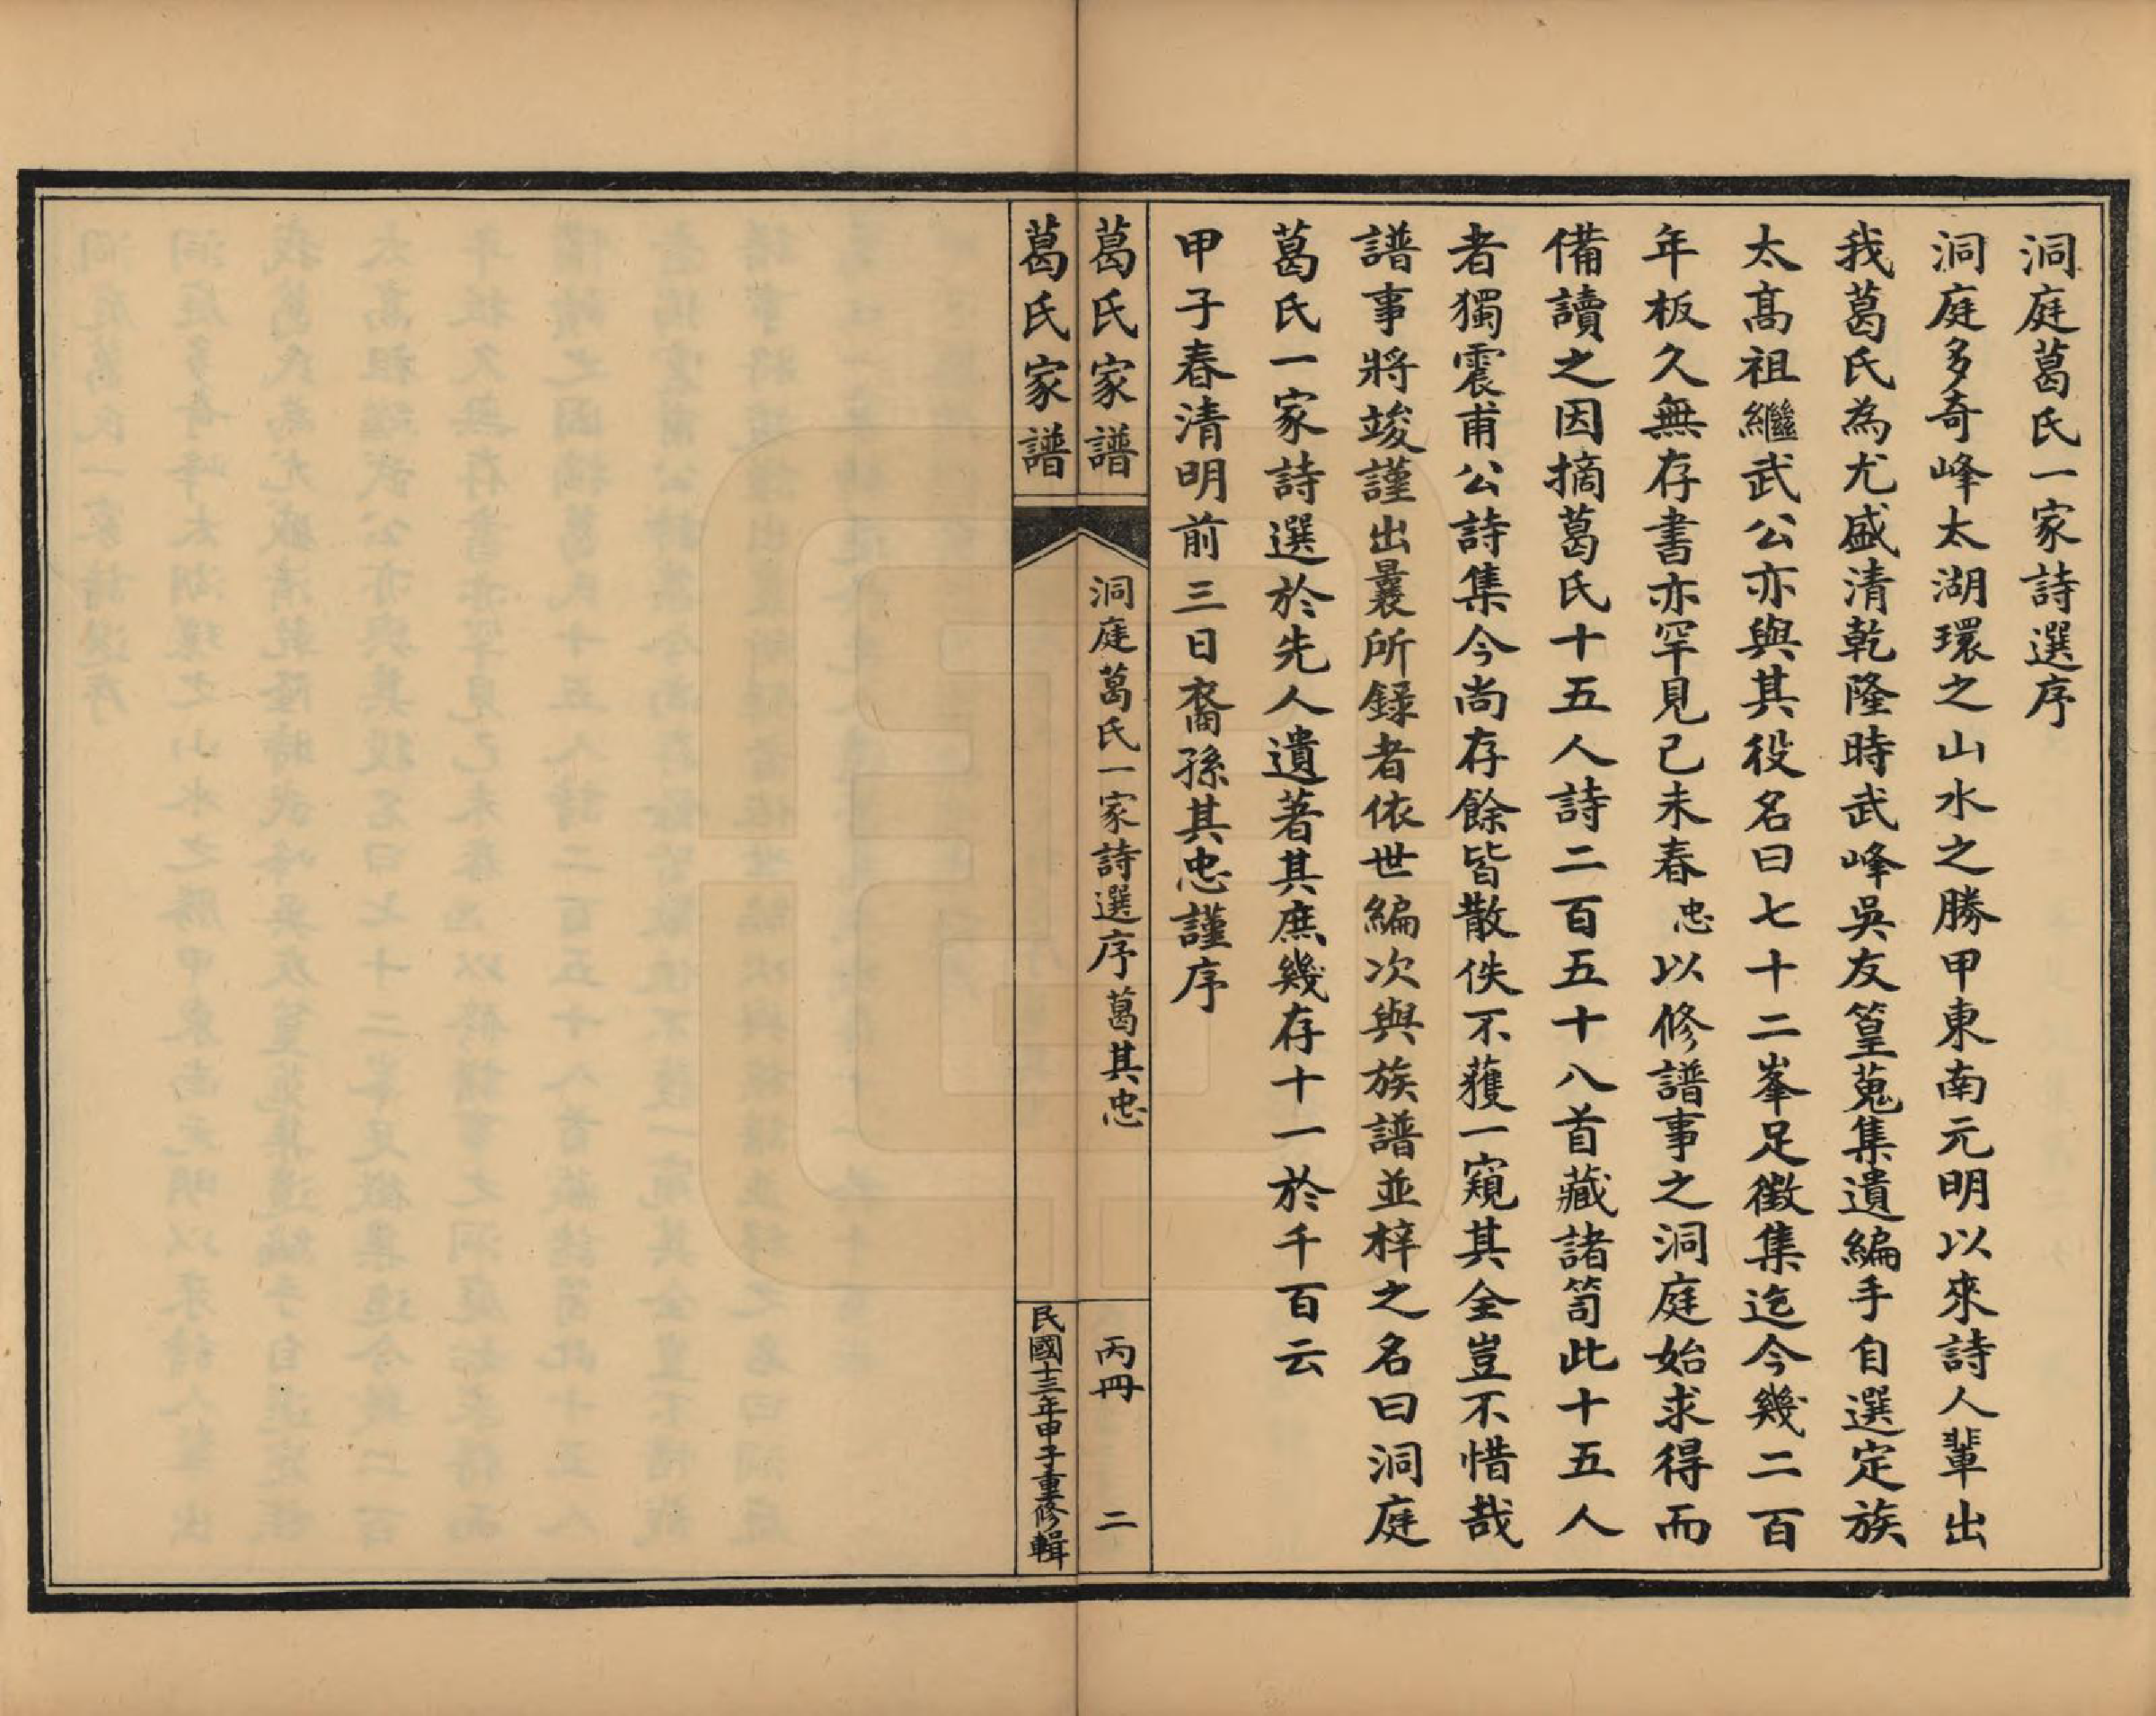 洞庭葛氏一家詩選序
洞庭多奇峰太湖環之山水之勝甲東南元明以來詩人輩出
我葛氏為尤盛清乾隆時武峰吳友篁蒐集遺編手自選定族
太高祖繼武公亦與其役名曰七十二峯足徵集迄今幾二百
年板久無存書亦罕見己未春忠以修譜事之洞庭始求得而
備讀之因摘葛氏十五人詩二百五十八首藏諸笥此十五人
者獨震甫公詩集今尚存餘皆散佚不獲一窺其全豈不惜哉
譜事將竣謹出曩所錄者依世編次與族譜並梓之名曰洞庭
葛氏一家詩選於先人遺著其庶幾存十一於千百云
甲子春清明前三日裔孫其忠謹序
葛氏家譜
洞庭葛氏一家詩選序葛其忠
丙冊
二
葛氏家譜
民國十三年甲子重修輯